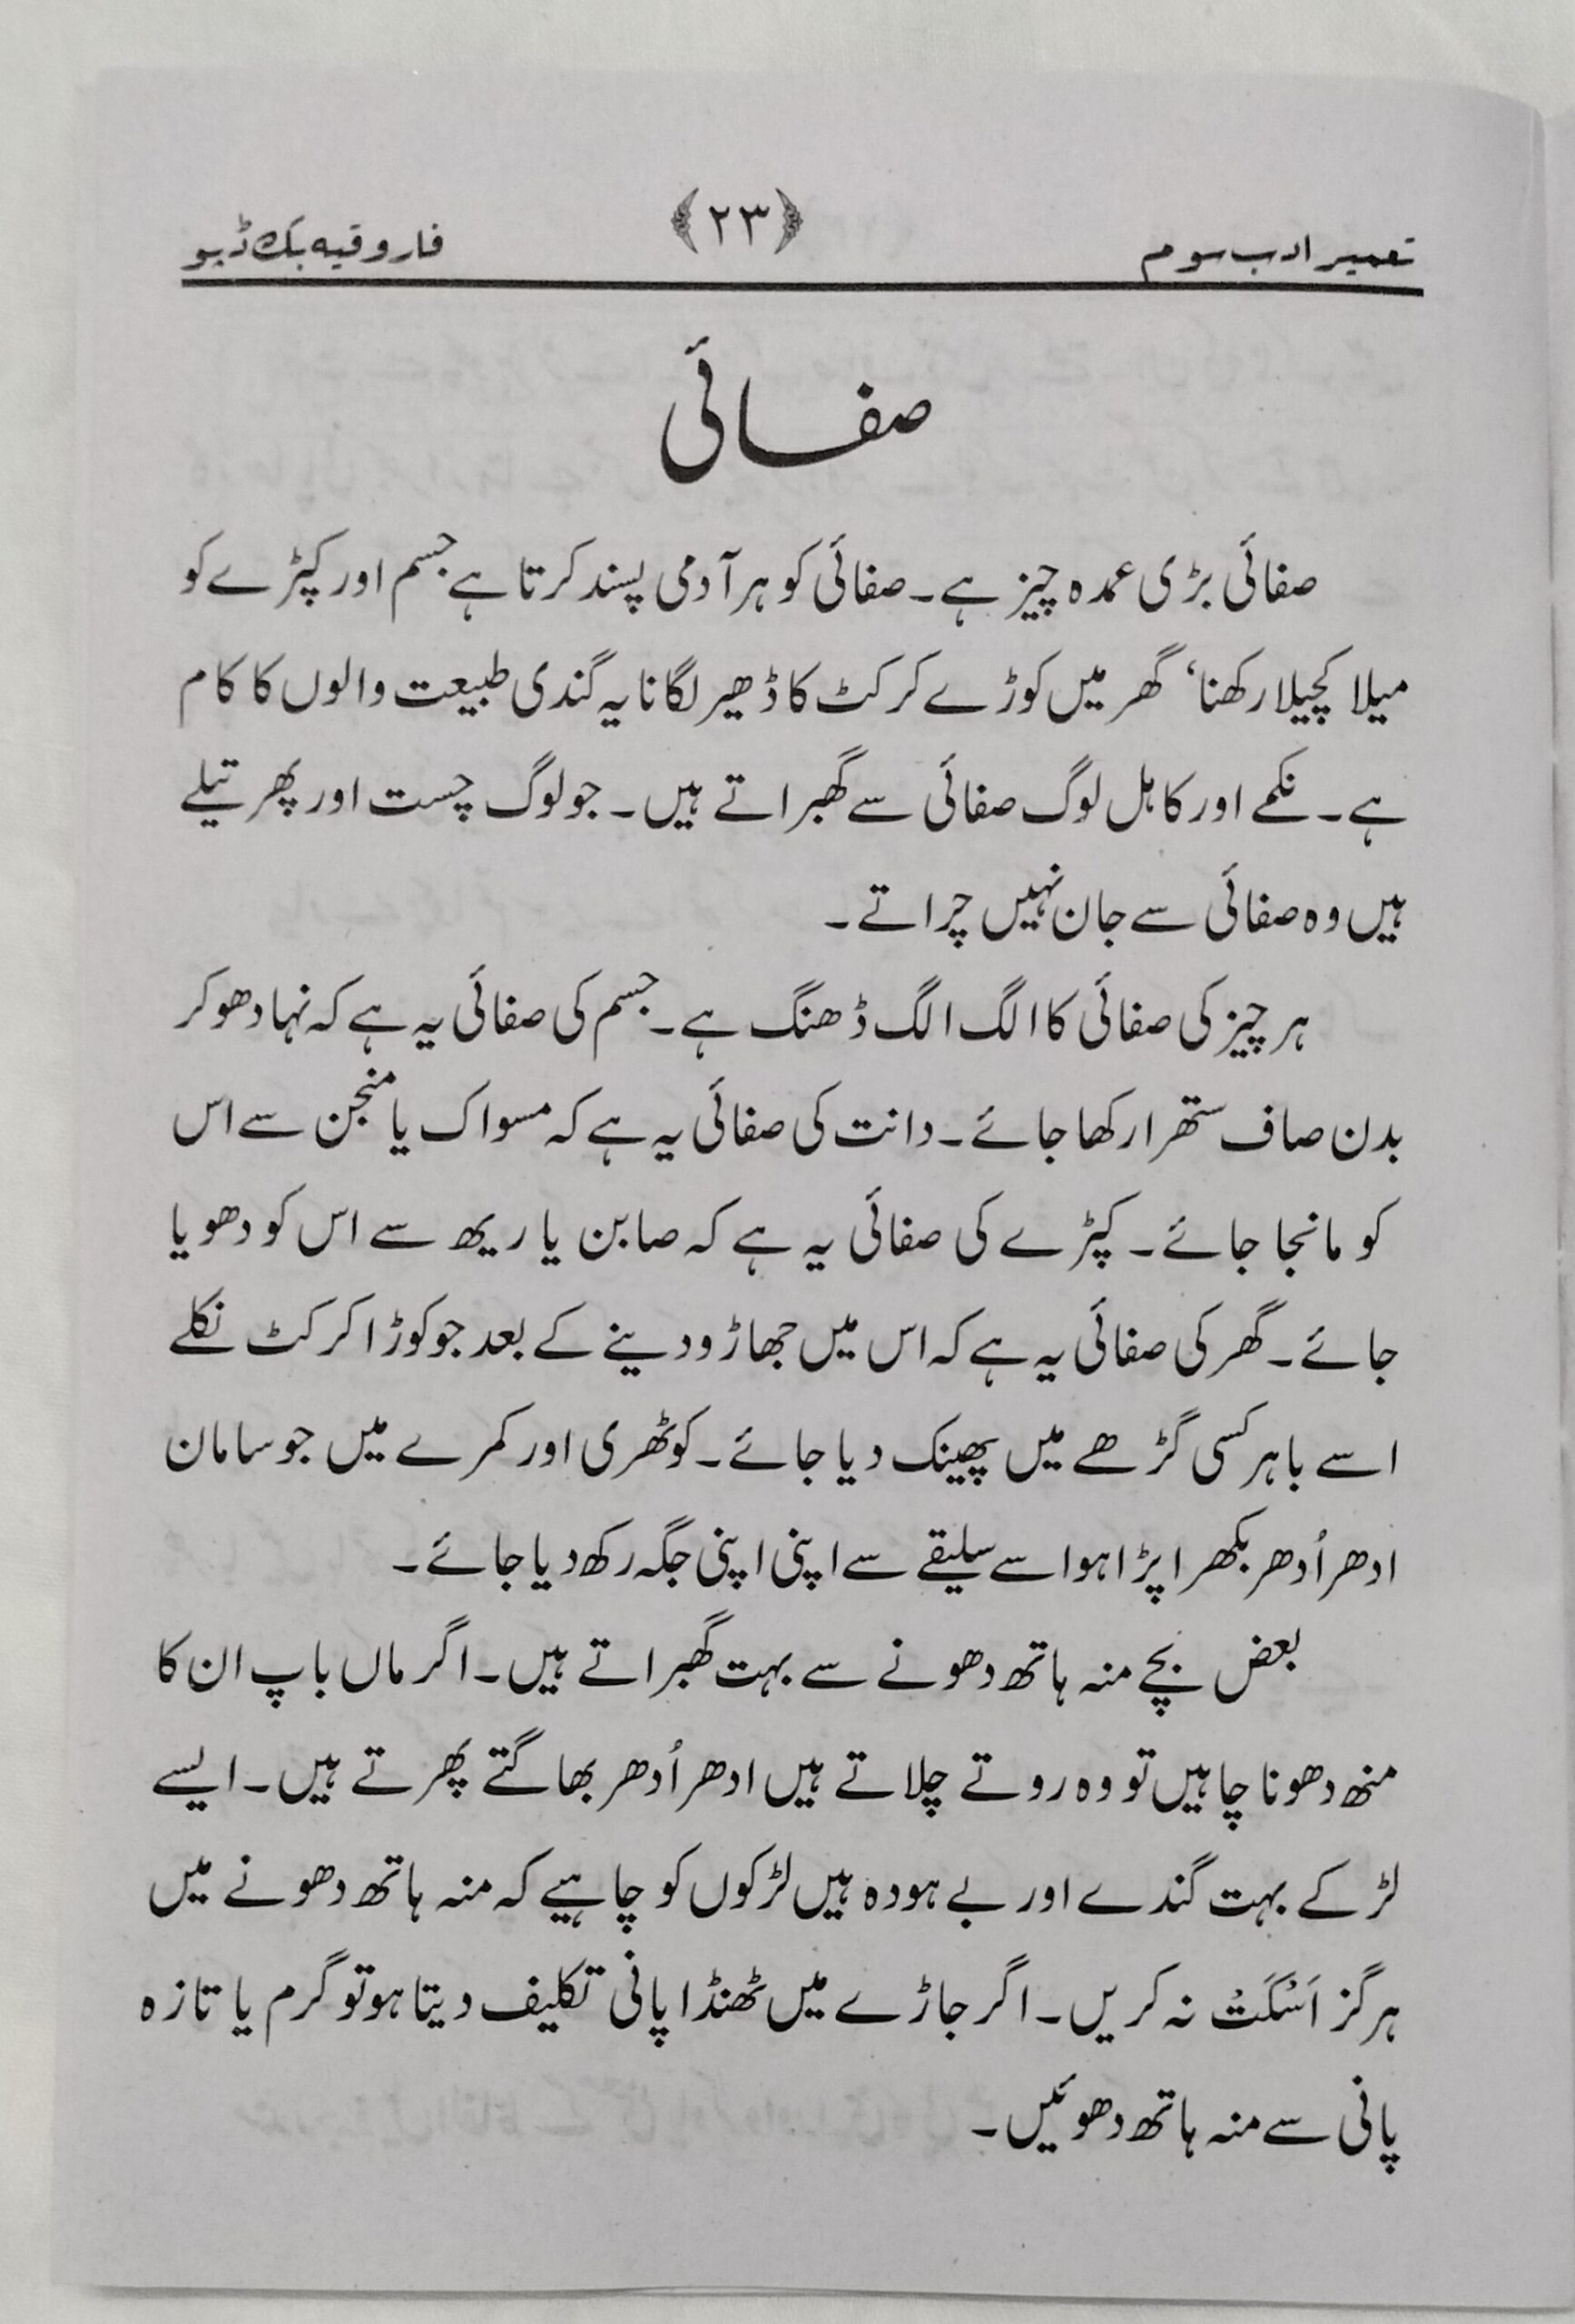 تعمیر ادب سوم ﴿۲۳﴾ فاروقیہ بکڈپو
صفائی
صفائی بڑی عمدہ چیز ہے۔ صفائی کو ہر آدمی پسند کرتا ہے جسم اور کپڑے کو
میلا کچیلا رکھنا‘ گھر میں کوڑے کرکٹ کا ڈھیر لگانا یہ گندی طبیعت والوں کا کام
ہے۔ نکمے اور کاہل لوگ صفائی سے گھبراتے ہیں۔ جو لوگ چست اور پھرتیلے
ہیں وہ صفائی سے جان نہیں چراتے۔
ہر چیز کی صفائی کا الگ الگ ڈھنگ ہے۔ جسم کی صفائی یہ ہے کہ نہا دھو کر
بدن صاف ستھرا رکھا جائے۔ دانت کی صفائی یہ ہے کہ مسواک یا منجن سے اس
کو مانجا جائے۔ کپڑے کی صفائی یہ ہے کہ صابن یا ریھ سے اس کو دھویا
جائے۔ گھر کی صفائی یہ ہے کہ اس میں جھاڑو دینے کے بعد جو کوڑا کرکٹ نکلے
اسے باہر کسی گڑھے میں پھینک دیا جائے۔ کوٹھری اور کمرے میں جو سامان
ادھر اُدھر بکھرا پڑا ہو اسے سلیقے سے اپنی اپنی جگہ رکھ دیا جائے۔
بعض بچے منہ ہاتھ دھونے سے بہت گھبراتے ہیں۔ اگر ماں باپ ان کا
منھ دھونا چاہیں تو وہ روتے چلاتے ہیں ادھر اُدھر بھاگتے پھرتے ہیں۔ ایسے
لڑکے بہت گندے اور بے ہودہ ہیں لڑکوں کو چاہیے کہ منہ ہاتھ دھونے میں
ہرگز اَسْکَتْ نہ کریں۔ اگر جاڑے میں ٹھنڈا پانی تکلیف دیتا ہو تو گرم یا تازہ
پانی سے منہ ہاتھ دھوئیں۔